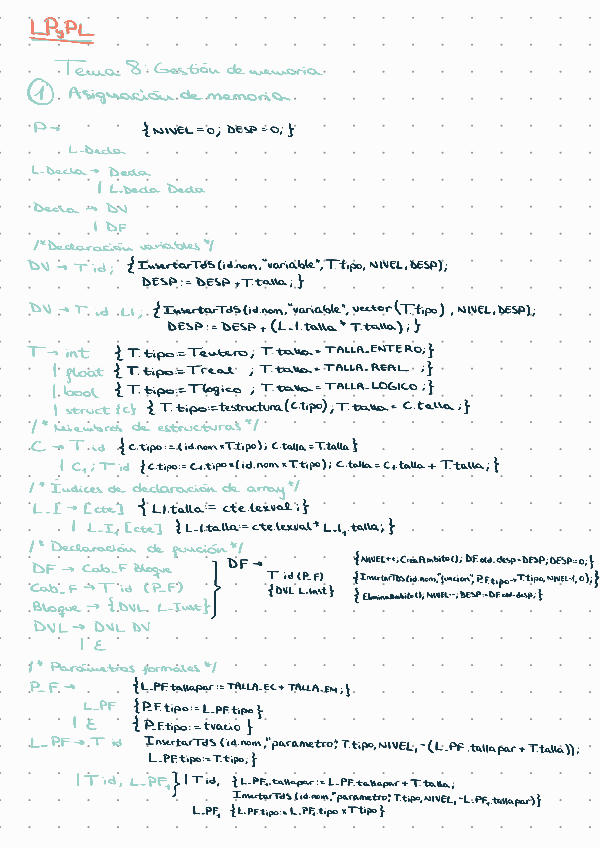 LPyPL
Tema 8: Gestión de memoria
1. Asignación de memoria
P → {NIVEL = 0; DESP = 0;}
L-Decla
L-Decla → Decla
| L-Decla Decla
Decla → DV
| DF
/*Declaración variables*/
DV → T id; {InsertarTdS(id.nom, "variable", T.tipo, NIVEL, DESP);
DESP := DESP + T.talla;}
DV → T id LI; {InsertarTdS(id.nom, "variable", vector(T.tipo), NIVEL, DESP);
DESP := DESP + (L-I.talla * T.talla);}
T → int {T.tipo := Tentero; T.talla = TALLA_ENTERO;}
| float {T.tipo := Treal; T.talla = TALLA_REAL;}
| bool {T.tipo := Tlogico; T.talla = TALLA_LOGICO;}
| struct {c} {T.tipo := testructura(C.tipo), T.talla = C.talla;}
/* Miembros de estructuras */
C → T id {C.tipo := (id.nom × T.tipo); C.talla = T.talla}
| C1; T id {C.tipo := C1.tipo × (id.nom × T.tipo); C.talla = C1.talla + T.talla;}
/* Indices de declaración de array */
L_I → [cte] {LI.talla = cte.lexval;}
| L_I1 [cte] {L-I.talla = cte.lexval * L-I1.talla;}
/* Declaración de función */
DF → Cab_F Bloque
Cab_F → T id (P_F)
Bloque → {DVL L-Inst}
DVL → DVL DV
| ε
DF → {NIVEL++; CreaAmbito(); DF.old.desp = DESP; DESP = 0;}
T id (P_F) {InsertarTdS(id.nom, "funcion", P_F.tipo → T.tipo, NIVEL-1, 0);}
{DVL L-Inst} {EliminaAmbito(), NIVEL--; DESP = DF.old.desp;}
/* Parámetros formales */
P_F → {L_PF.tallapar := TALLA_EC + TALLA_EM;}
L_PF {P_F.tipo := L_PF.tipo}
| ε {P_F.tipo := tvacio}
L_PF → T id InsertarTdS(id.nom, "parametro", T.tipo, NIVEL, -(L_PF.tallapar + T.talla));
L_PF.tipo := T.tipo;}
| T id, L_PF1 } | T id, {L_PF1.tallapar := L_PF.tallapar + T.talla;
InsertarTdS(id.nom, "parametro", T.tipo, NIVEL, -L_PF1.tallapar)}
L_PF1 {L_PF.tipo := L_PF1.tipo × T.tipo}